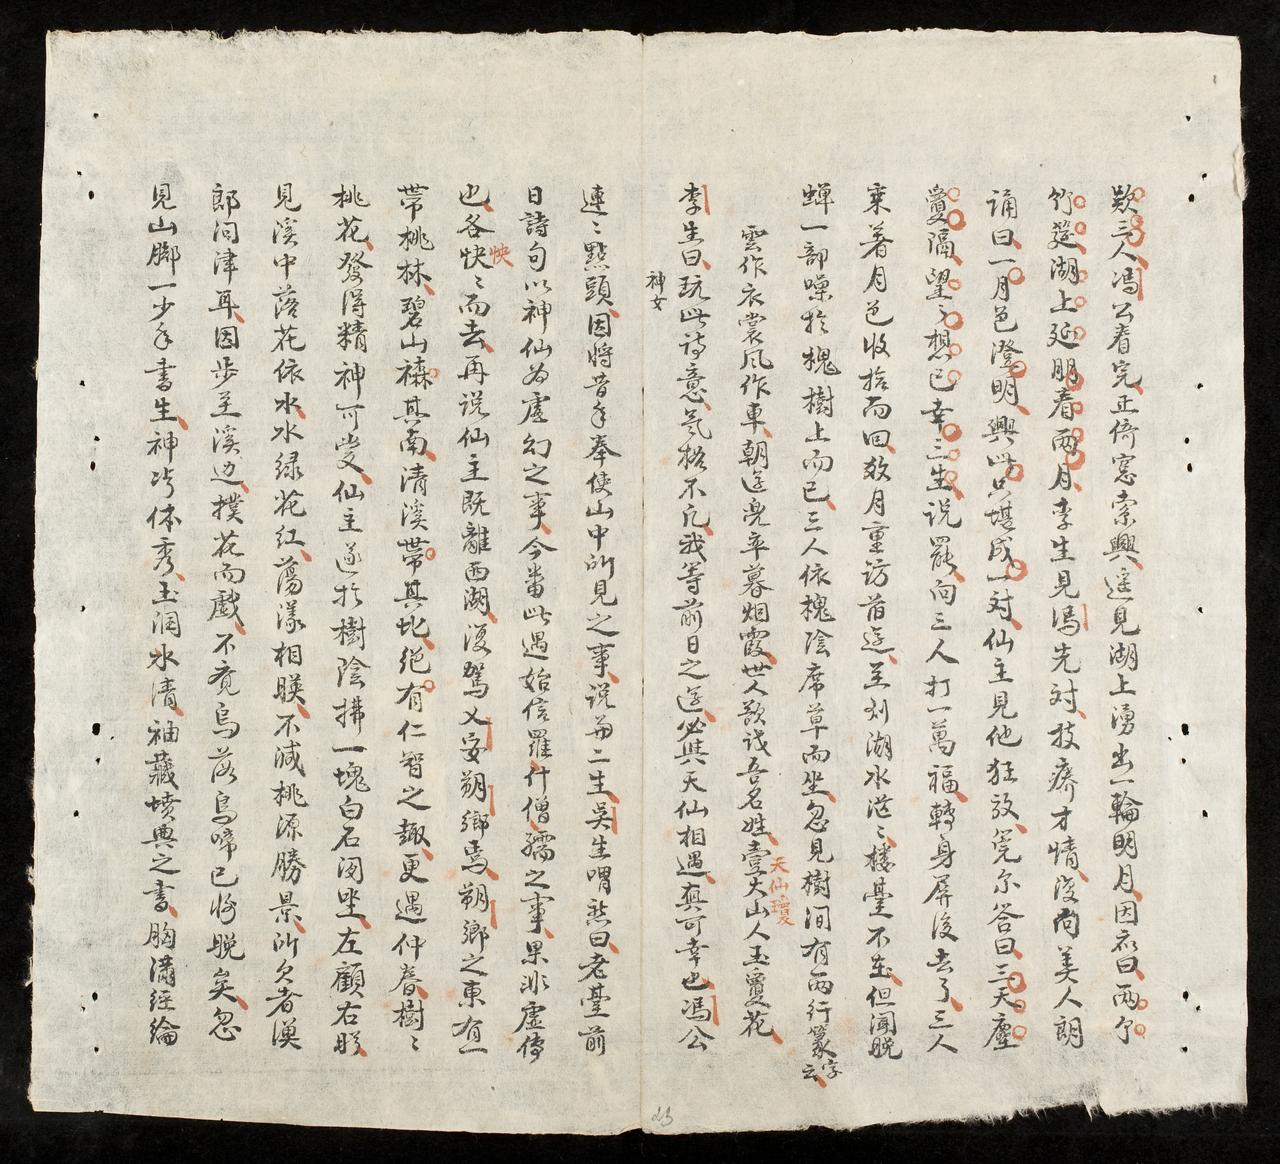 歎三人馮公看完正倚窓索興遥見湖上湧出一輪明月因詠曰兩个
竹筵湖上延明春兩月李生見馮先対技癢才情復向美人朗
誦曰一月色澄明興此只堪成一対仙主見他狂放莞尔答曰三天塵
憂隔望之想已幸三生说罷向三人打一萬福轉身屏後去了三人
乗着月色收拾而回数月重访旧遊至则湖水泛〻楼臺不在但闻晩
蝉一部噪於槐樹上而已三人依槐陰席草而坐忽見樹间有兩行篆字云
雲作衣裳风作車朝遊兜率暮烟霞世人欲识吾名姓壹大山人玉夐花
天仙瓊
李生曰玩此诗意気格不凡我等前日之遊必與天仙相遇真可幸也馮公
神女
連〻點頭因將昔年奉使山中所見之事说与二生吴生喟然曰老臺前
日詩句以神仙为虚幻之事今番此遇始信羅什僧孺之事果非虚传
也各快〻而去再说仙主既離西湖復駕乂安朔鄉焉朔鄉之東有一
怏
帯桃林碧山襟其南清溪帯其北绝有仁智之趣更遇仲春樹〻
桃花發得精神可愛仙主遂於樹陰拂一塊白石闷坐左顧右盼
見溪中落花依水水绿花红蕩漾相暎不减桃源勝景所欠者漁
郎问津耳因步至溪边撲花而戯不觉烏落烏啼已將晩矣忽
見山脚一少年書生神清体秀玉润水清袖藏墳典之書胸满經綸